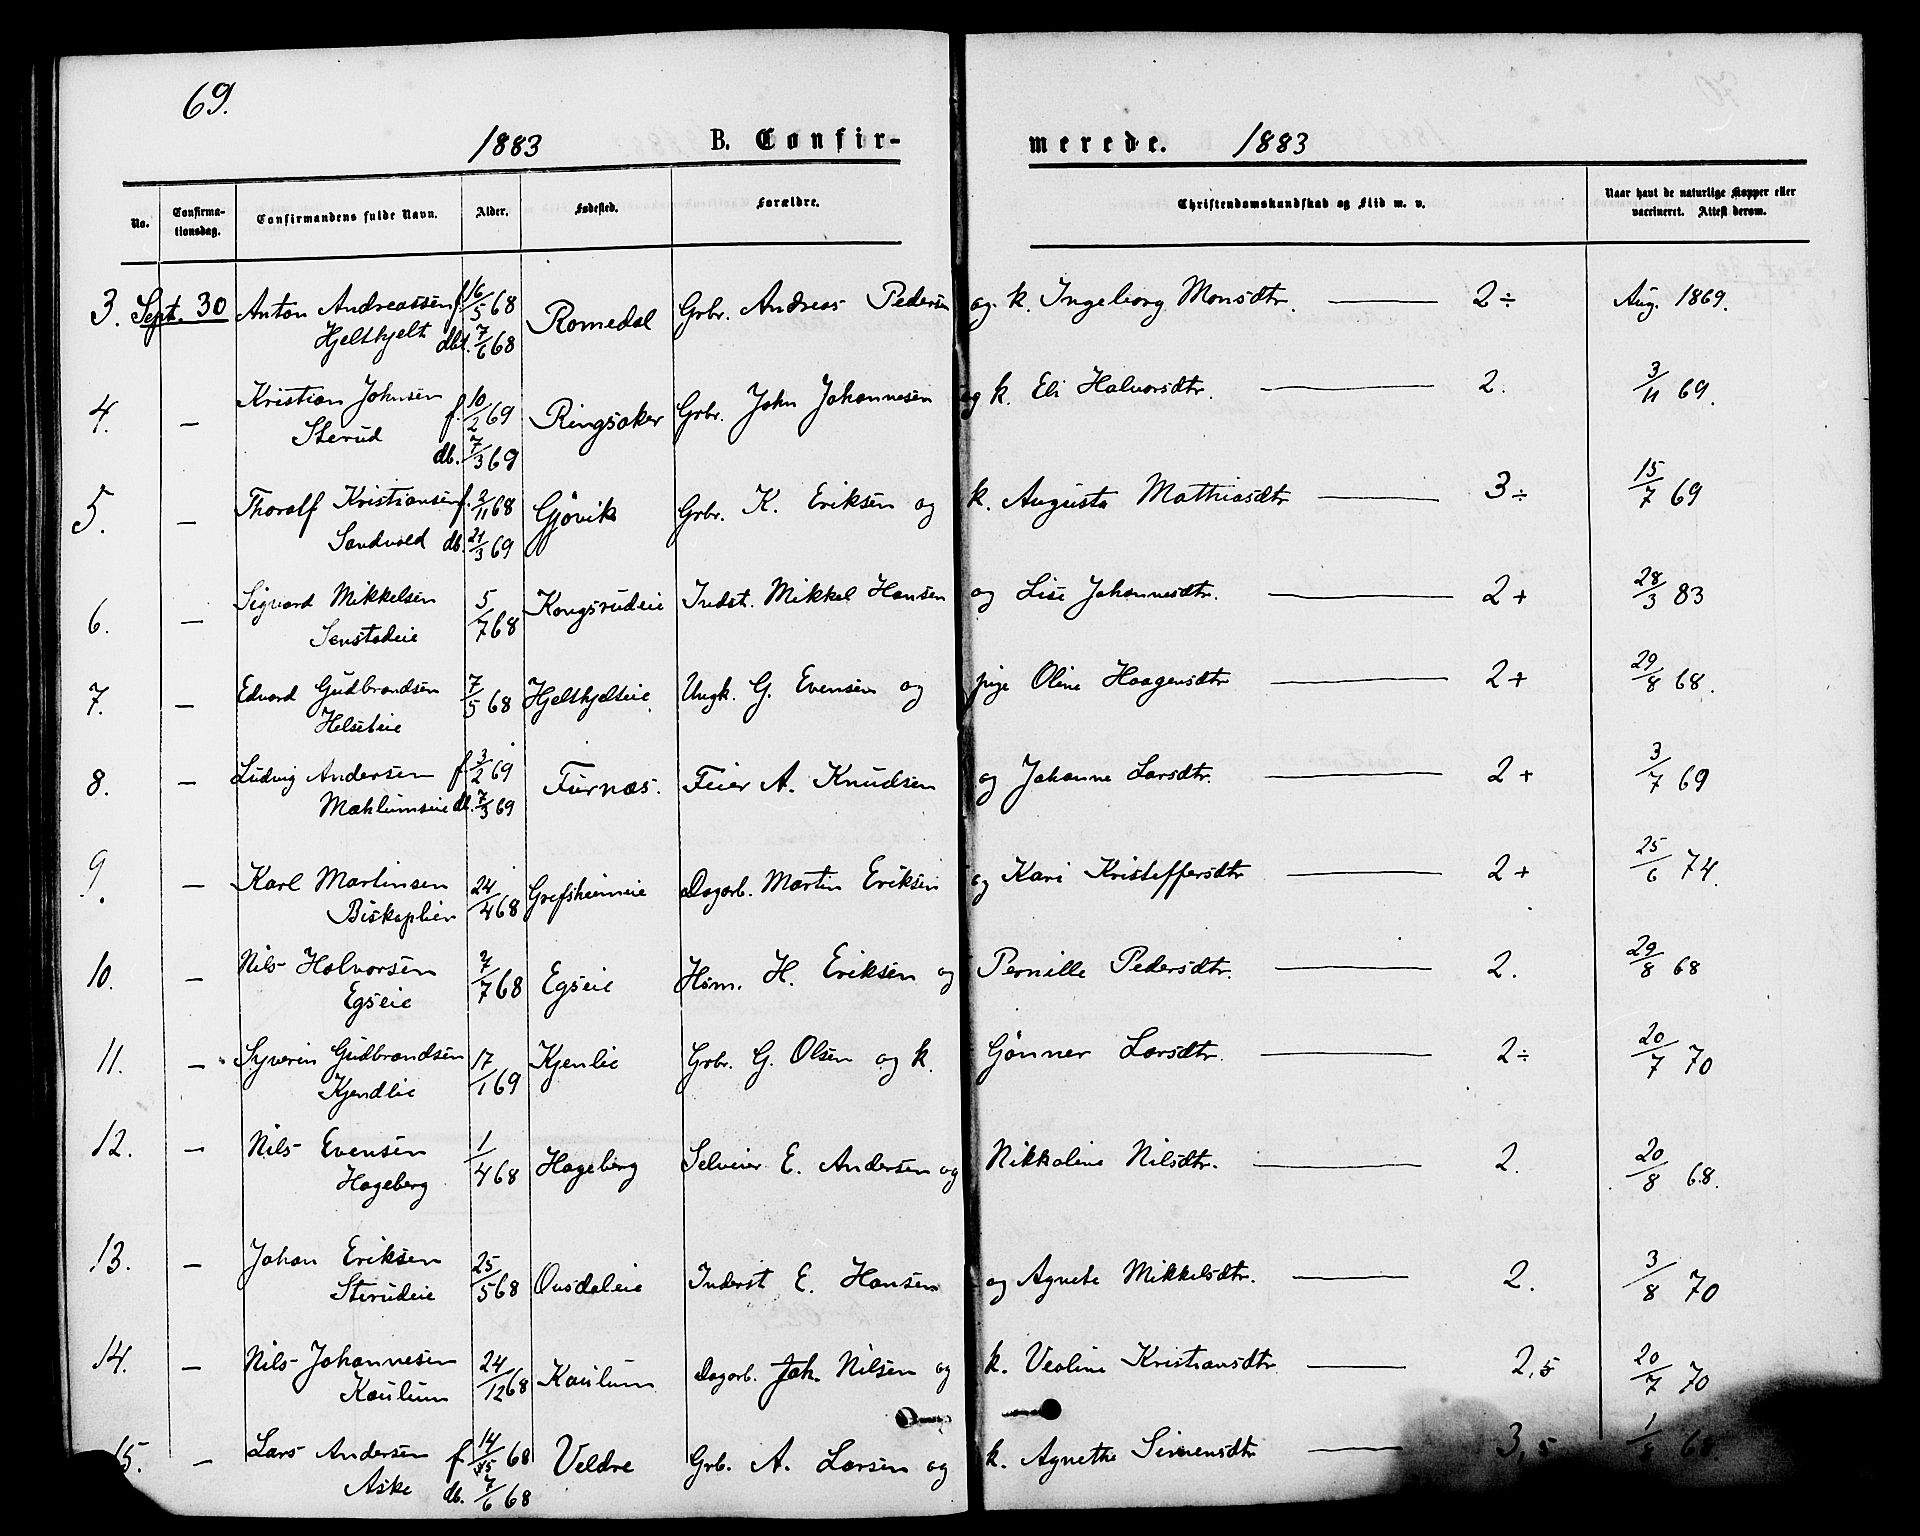 69.
1883 B. Confirmerede. 1883
No. Confirmationsdag. Confirmandens fulde Navn. Alder. Fødested. Forældre. Christendomskundskab og Flid m. v. Naar havt de naturlige Kopper eller vaccineret. Attest derom.
3. Sept. 30 Anton Andreassen f. 16/5 68 Romedal Grbr. Andreas Pedersen og k. Ingeborg Monsdtr. 2 ÷ Aug. 1869.
Hjelskjelt dbt. 7/6 68
4. — Kristian Johnsen f. 10/2 69 Ringsaker Grbr. John Johannesen og k. Eli Halvorsdtr. 2. 3/11 69.
Sterud db. 7/3 69
5. — Thoralf Kristiansen f. 2/11 68 Gjøvik Grbr. K. Eriksen og k. Augusta Mathiasdtr 3 ÷ 15/7 69
Sandvold db. 21/3 69
6. — Sigvard Mikkelsen 5/7 68 Kongsrudeie Indst. Mikkel Hansen og Lise Johannesdtr. 2 + 28/3 83
Senstadeie
7. — Edvard Gudbrandsen 7/5 68 Hjelskjelseie Ungk. G. Evensen og pige Oline Haagensdtr 2 + 29/8 68.
Helseteie
8. — Ludvig Andersen f. 3/2 69 Furnæs. Feier A. Knudsen og Johanne Larsdtr. 2 + 3/7 69
Mæhlumseie db. 7/3 69
9. — Karl Martinsen 24/4 68 Grefsheimeie Dagarb. Martin Eriksen og Kari Kristoffersdtr 2 + 25/6 74.
Biskoplien
10. — Nils Halvorsen 7/7 68 Egseie Hsm. H. Eriksen og Pernille Pedersdtr. 2. 29/8 68
Egseie
11. — Syverin Gudbrandsen 17/1 69 Kjenlie Grbr. G. Olsen og k. Gønner Larsdtr. 2 ÷ 20/7 70
Kjendlie
12. — Nils Evensen 1/4 68 Hageberg Selveier E. Andersen og Nikkoline Nilsdtr. 2. 20/8 68.
Hageberg
13. — Johan Eriksen 25/5 68 Ousdaleie Inderst E. Hansen og Agnete Mikkelsdtr. 2. 3/8 70
Sterudeie
14. — Nils Johannesen 24/12 68 Kaulum Dagarb. Joh. Nilsen og k. Veoline Kristiansdtr 2,5 20/7 70
Kaulum
15. — Lars Andersen f. 14/5 68 Veldre Grb. A. Larsen og k. Agnethe Simensdtr 3,5 1/8 68.
Aske db. 7/6 68